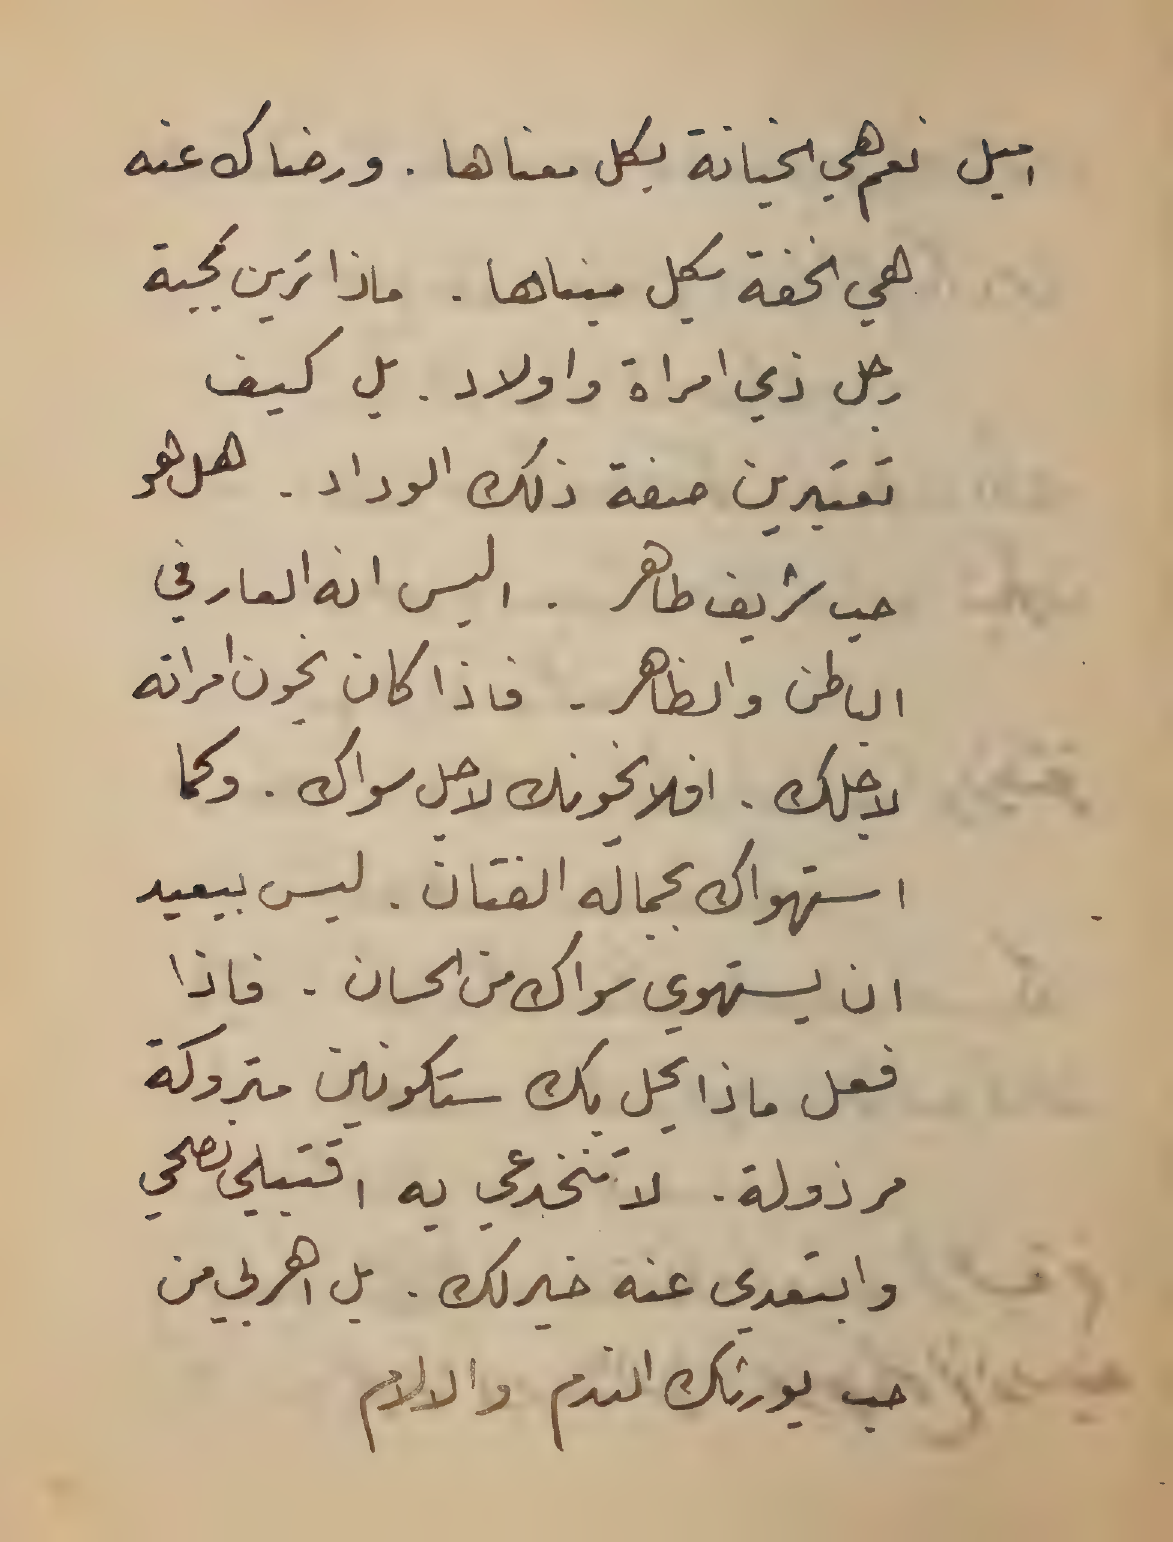 اميل نعم هي الخيانة بكل معناها . ورضاك عنه
هي الخفة بكل معناها . ماذا ترين بمحبة
رجل ذي امراة واولاد . بل كيف
تعتبرين صفة ذلك الوداد . هل هو
حب شريف طاهر . اليس انه العار في
الباطن والظاهر . فاذا كان يخون امراته
لاجلك . افلا يخونك لاجل سواك . وكما
استهواك بجماله الفتان . ليس ببعيد
ان يستهوي سواك من الحسان . فاذا
فعل ماذا يحل بك ستكونين متروكة
مرذولة . لا تنخدعي به اقتبلي نصحي
وابتعدي عنه خير لك . بل اهربي من
حب يورثك الندم والالام